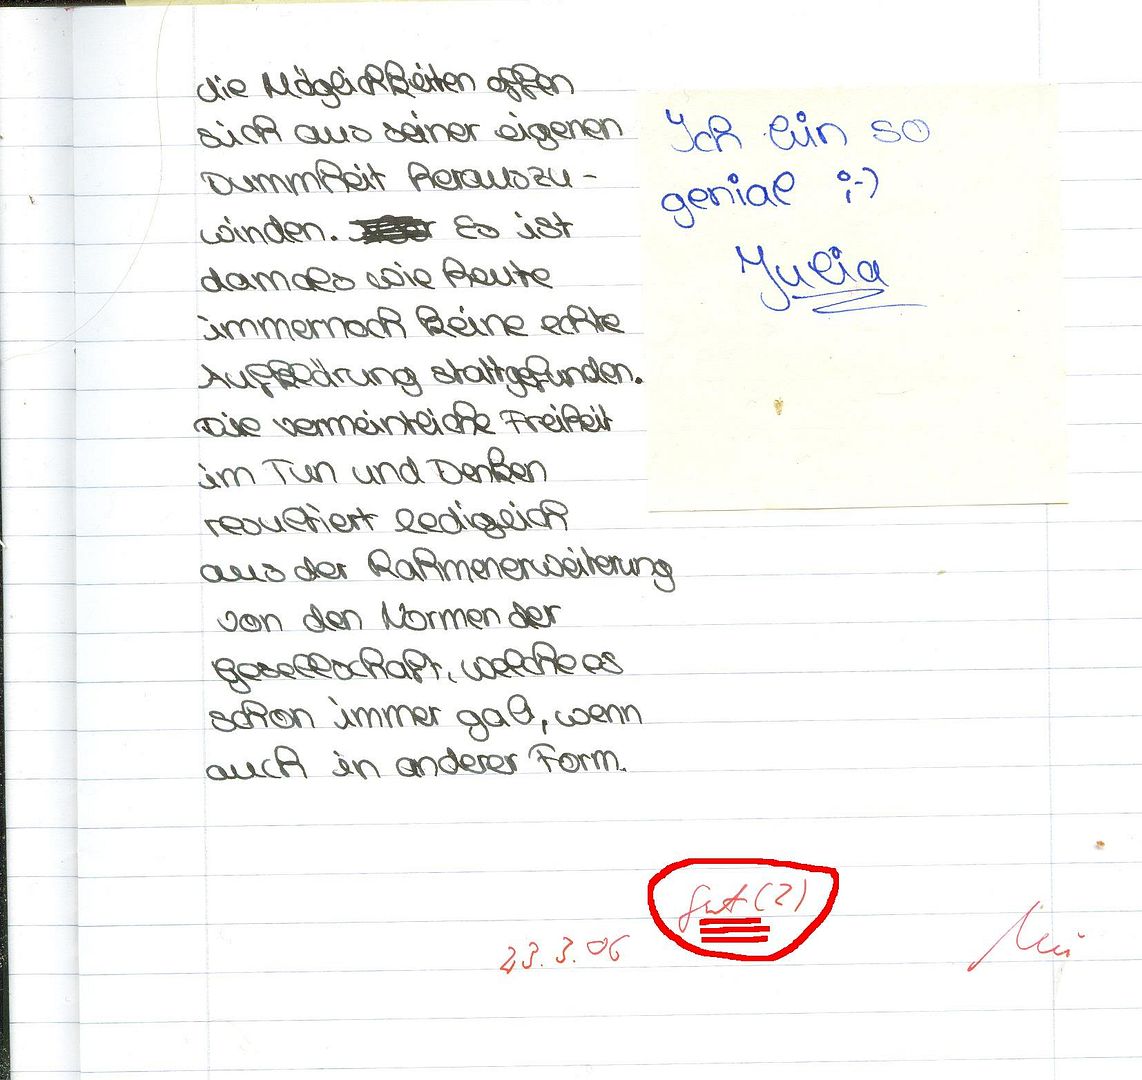 die Möglichkeiten offen
sich aus seiner eigenen
Dummheit herauszu-
winden. Es ist
damals wie heute
immernoch keine echte
Aufklärung stattgefunden.
Die vermeintliche Freiheit
im Tun und Denken
resultiert lediglich
aus der Rahmenerweiterung
von den Normen der
Gesellschaft, welche es
schon immer gab, wenn
auch in anderer Form.
Ich bin so
genial ;-)
Julia
gut (2)
23.3.06